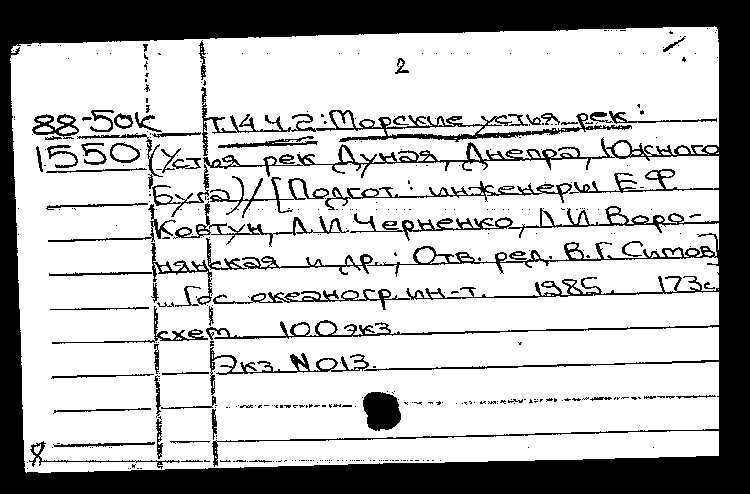 2
88-50к Т.14.Ч.2: Морские устья рек:
1550 (Устья рек Дуная, Днепра, Южного
Буга)/[Подгот.: инженеры Е.Ф.
Ковтун, Л.И.Черненко, Л.И.Воро-
нянская и др.; Отв. ред. В.Г. Симов]
... Гос. океаногр.ин-т. 1985. 173с.
схем. 100экз.
Экз. N 013.
8